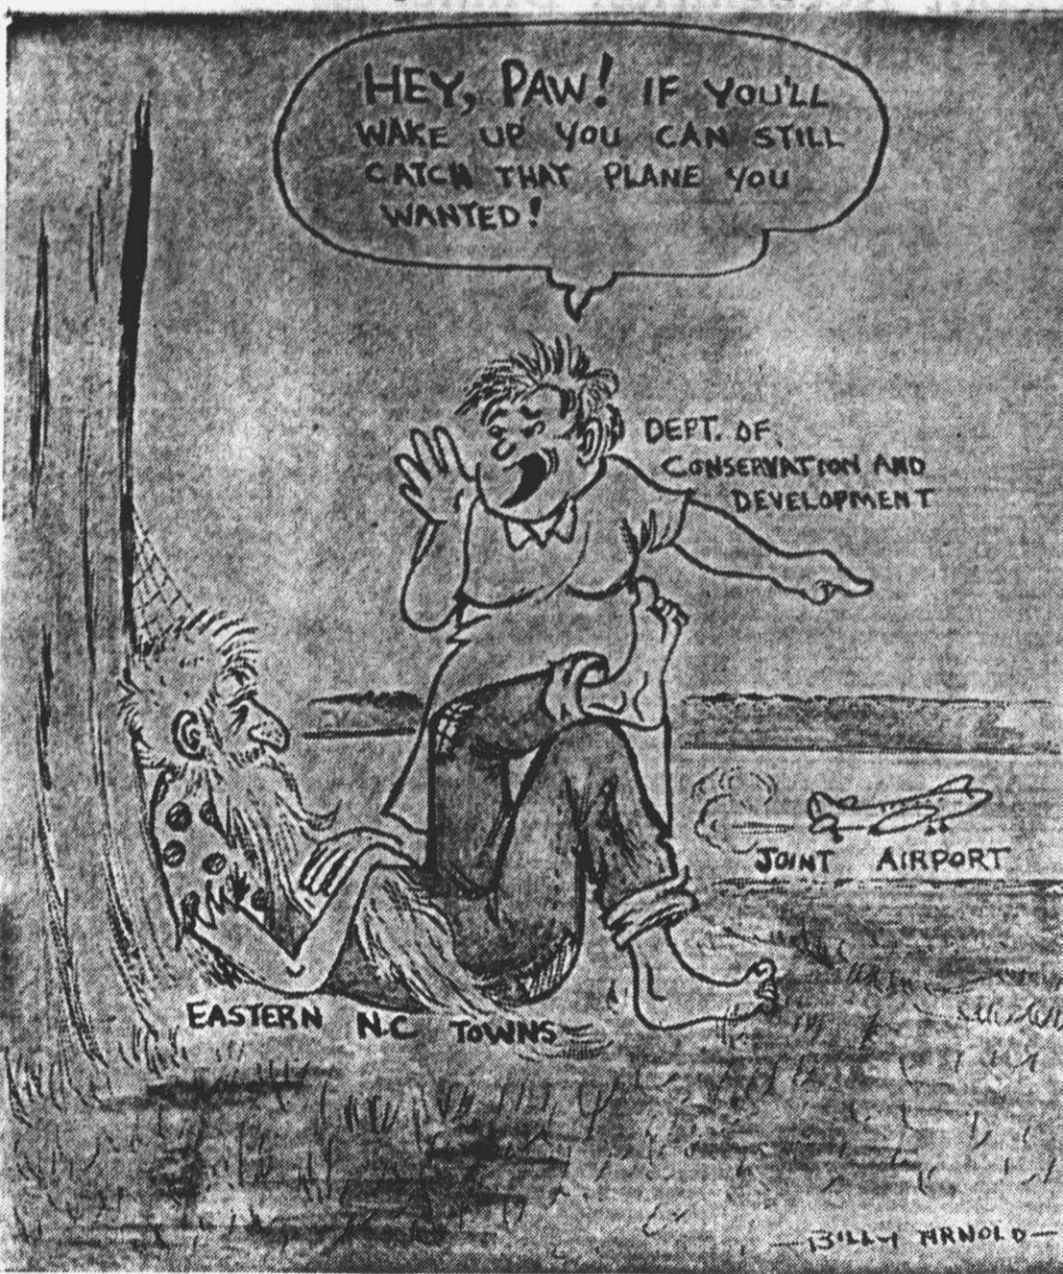 HEY, PAW! IF YOU'LL
WAKE UP YOU CAN STILL
CATCH THAT PLANE YOU
WANTED!
DEPT. OF
CONSERVATION AND
DEVELOPMENT
JOINT AIRPORT
EASTERN N.C TOWNS
-BILLY ARNOLD-